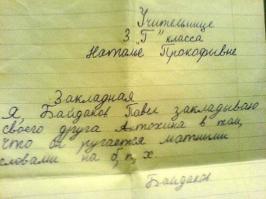 Учительнице
3 "Г" класса
Наталье Прокофивне
Закладная
Я, Байдаков Павел закладываю
своего друга Антохина в том,
что он ругается матными
словами на б, п, х
Байдаков